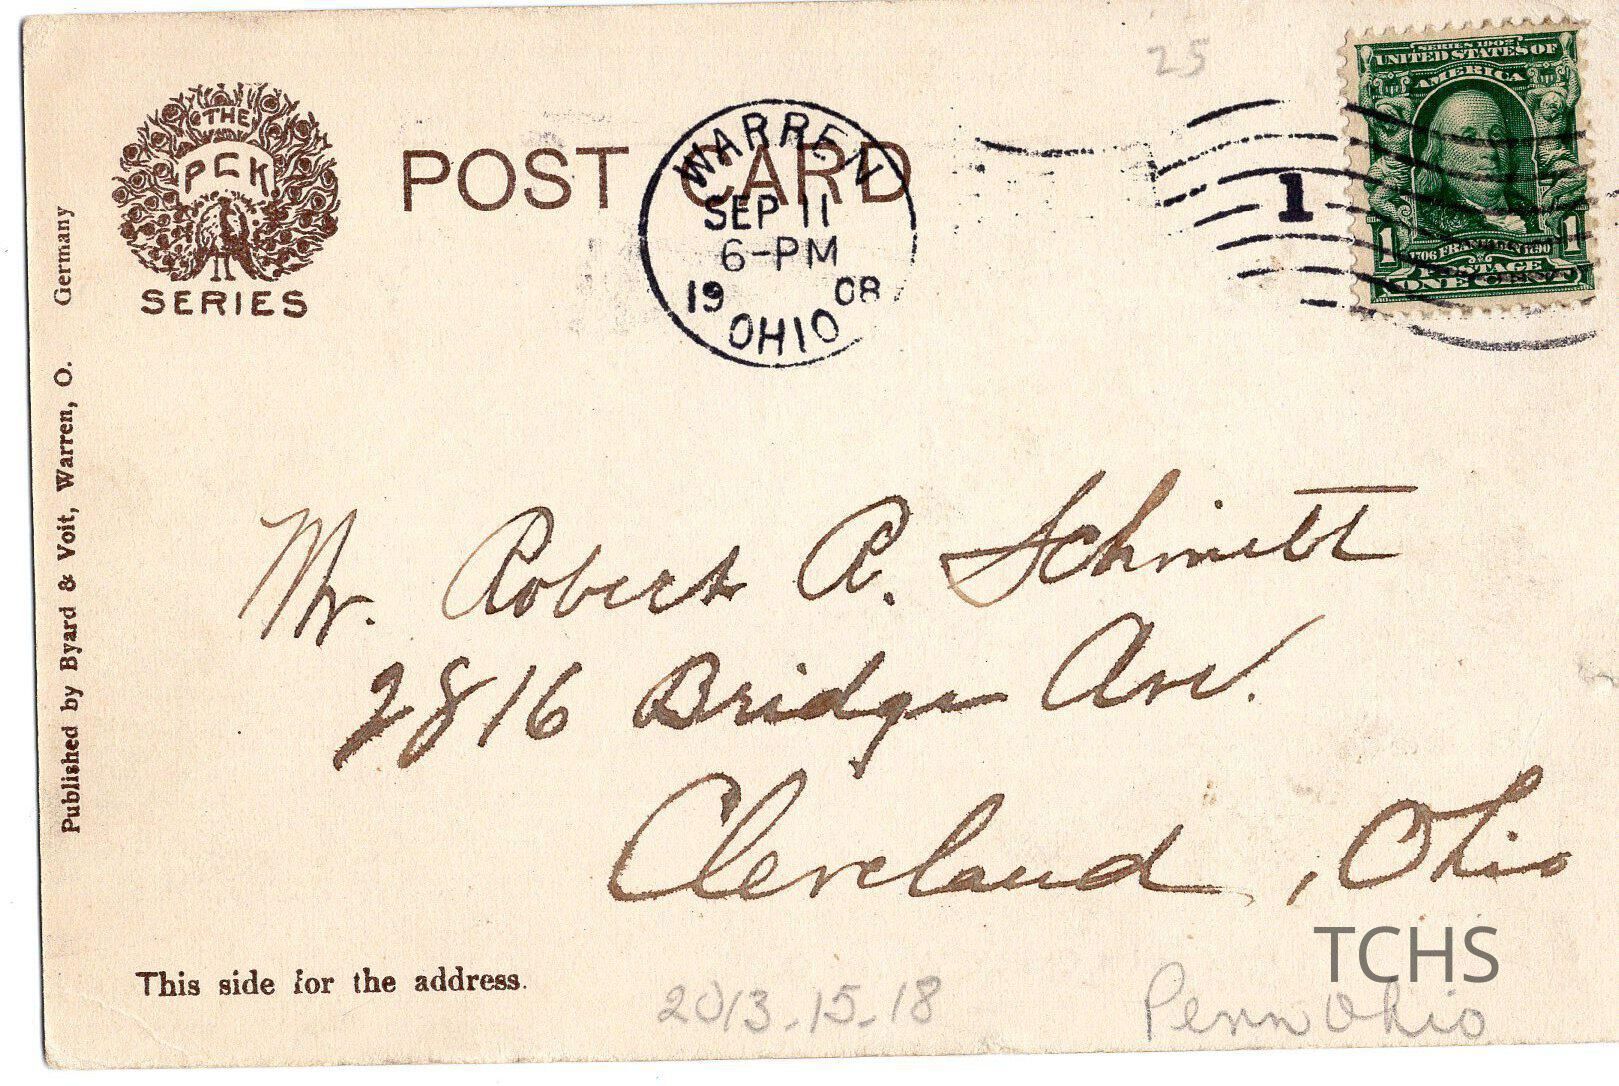 25
SERIES 1902
UNITED STATES OF
AMERICA
1 FRANKLIN 1
POSTAGE
ONE CENT
THE
PCK
SERIES
POST CARD
WARREN
SEP 11
6-PM
19 08
OHIO
1
Published by Byard & Voit, Warren, O. Germany
Mr. Robert A. Schmitt
2816 Bridge Ave.
Cleveland, Ohio
TCHS
This side for the address.
2013.15.18
Penn Ohio